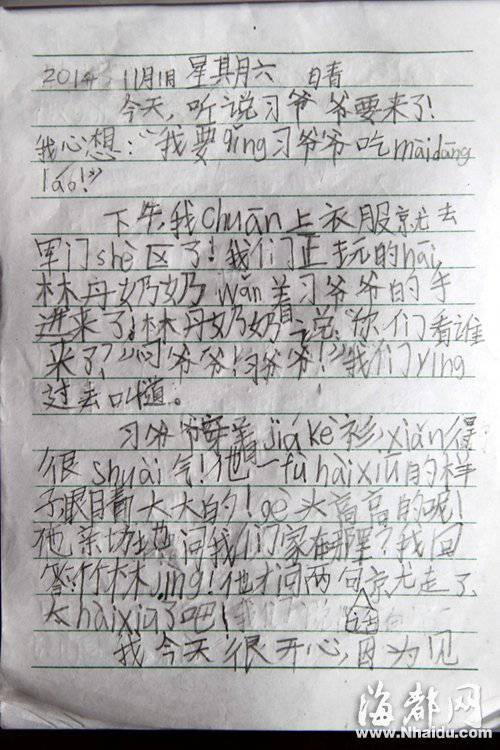 2014 11月1日 星其月六 日青
今天,听说习爷爷要来了!
我心想:“我要qǐng习爷爷吃màidāng
láo!”
下午,我chuān上衣服就去
军门shè区了!我们正玩的hāi,
林丹奶奶wǎn羊习爷爷的手
进来了,林丹奶奶说:“你们看谁
来了?”“习爷爷!习爷爷!”我们yíng
过去叫道。
习爷爷穿着jiákè衫,xiǎn得
很shuài气!他一fù hàixiū的样
子,眼睛大大的!gè头高高的呢!
他亲切地问我们家在哪里?我回
答:竹林jìng!他才问两句就走了
话
太hàixiū了吧!
我今天很开心,因为见
海都网
www.Nhaidu.com